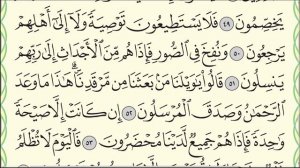 يَخِصِّمُونَ ٤٩ فَلَا يَسْتَطِيعُونَ تَوْصِيَةً وَلَآ إِلَىٰٓ أَهْلِهِمْ
يَرْجِعُونَ ٥٠ وَنُفِخَ فِى ٱلصُّورِ فَإِذَا هُم مِّنَ ٱلْأَجْدَاثِ إِلَىٰ رَبِّهِمْ
يَنسِلُونَ ٥١ قَالُوا۟ يَٰوَيْلَنَا مَنۢ بَعَثَنَا مِن مَّرْقَدِنَا ۜ ۗ هَٰذَا مَا وَعَدَ
ٱلرَّحْمَٰنُ وَصَدَقَ ٱلْمُرْسَلُونَ ٥٢ إِن كَانَتْ إِلَّا صَيْحَةً
وَٰحِدَةً فَإِذَا هُمْ جَمِيعٌ لَّدَيْنَا مُحْضَرُونَ ٥٣ فَٱلْيَوْمَ لَا تُظْلَمُ